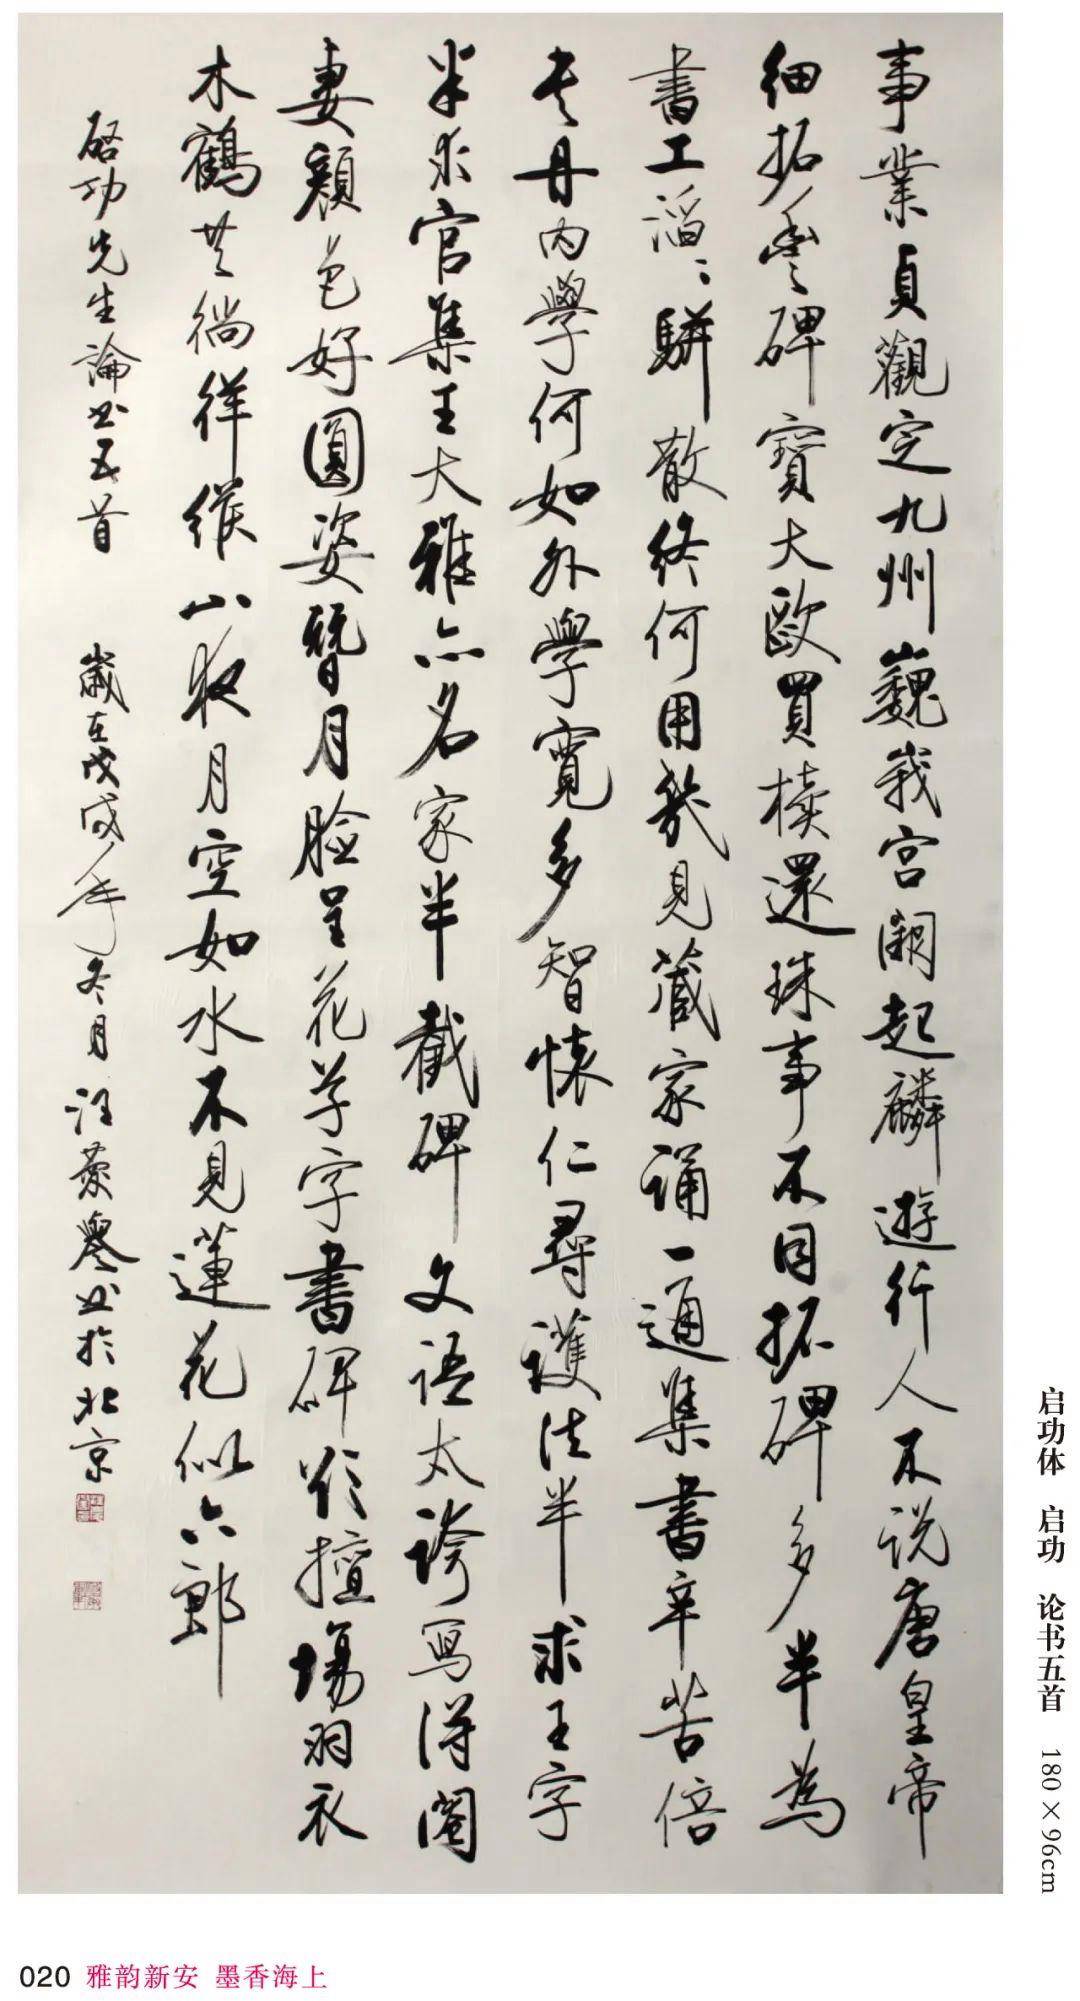 事業貞觀定九州巍峩宮闕起麟遊行人不説唐皇帝
細拓豐碑寶大歐買櫝還珠事不同拓碑多半為
書工滔〻駢散終何用幾見藏家誦一通集書辛苦倍
書丹内學何如外學寬多智懷仁尋護法半求王字
半求官集王大雅亦名家半截碑文語太誇寫得閹
妻顏色好圓姿替月臉呈花草字書碑欲擅場羽衣
木鶴共徜徉緱山夜月空如水不見蓮花似六郎
啓功先生論書五首 歲在戊戌年冬月 汪 書於北京
启功体 启功 论书五首 180×96cm
020 雅韵新安 墨香海上